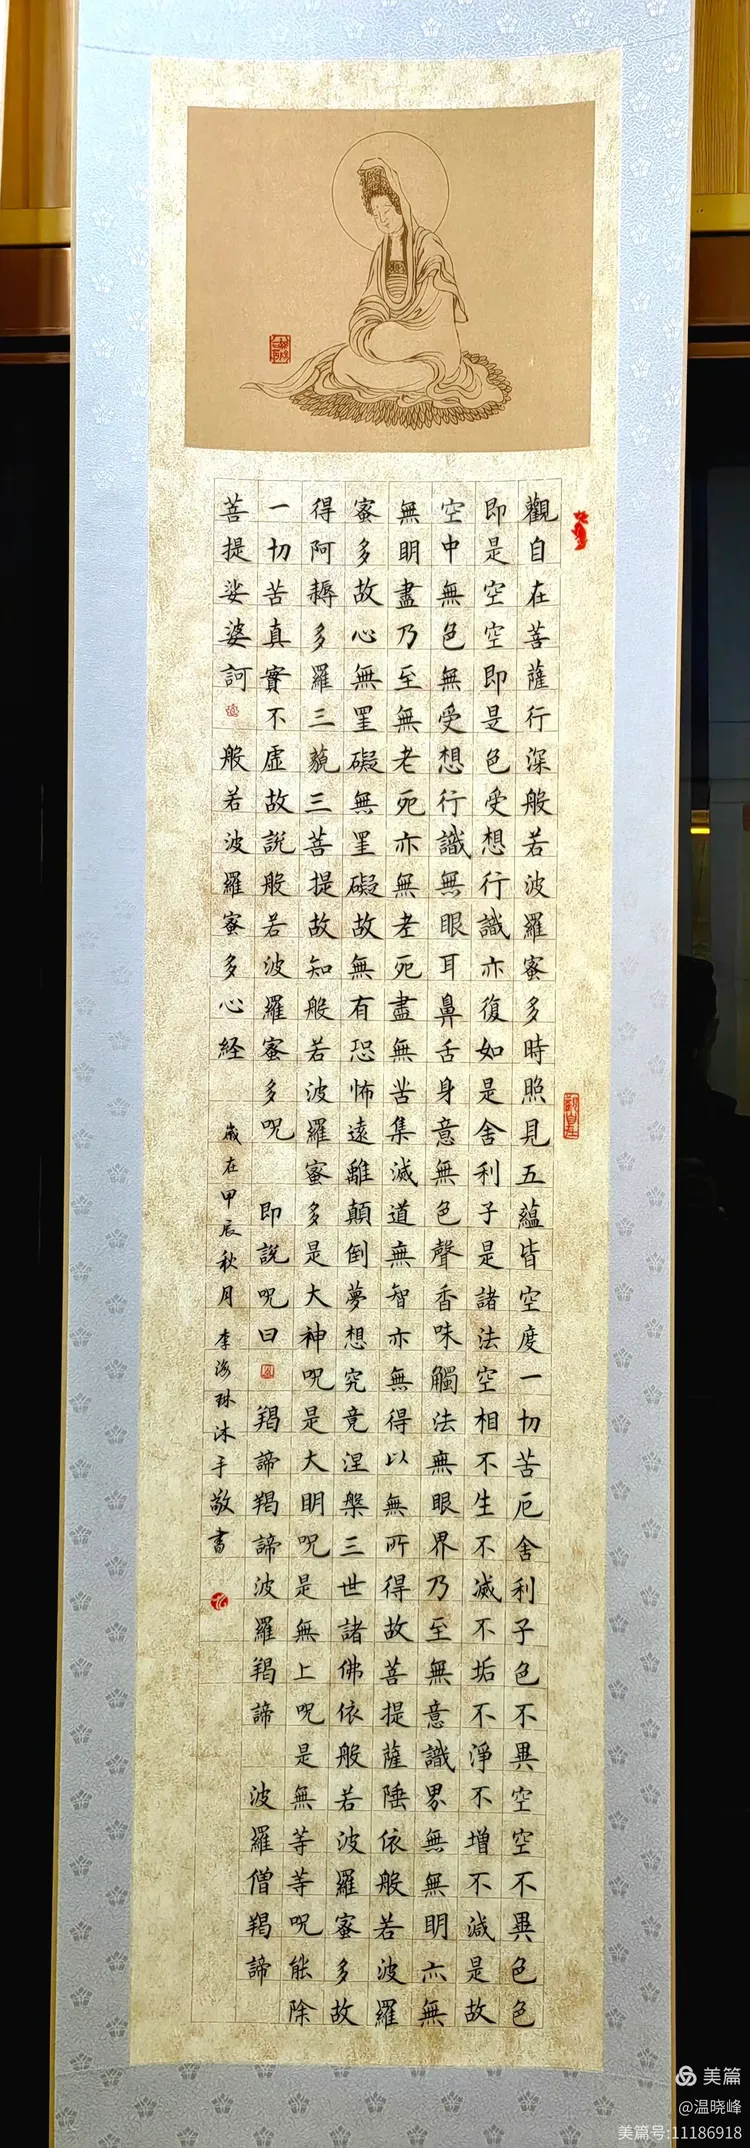 觀自在菩薩行深般若波羅蜜多時照見五蘊皆空度一切苦厄舍利子色不異空空不異色色
即是空空即是色受想行識亦復如是舍利子是諸法空相不生不滅不垢不淨不增不減是故
空中無色無受想行識無眼耳鼻舌身意無色聲香味觸法無眼界乃至無意識界無無明亦無
無明盡乃至無老死亦無老死盡無苦集滅道無智亦無得以無所得故菩提薩陲依般若波羅
蜜多故心無罣礙無罣礙故無有恐怖遠離顛倒夢想究竟涅槃三世諸佛依般若波羅蜜多故
得阿耨多羅三藐三菩提故知般若波羅蜜多是大神呪是大明呪是無上呪是無等等呪能除
一切苦真實不虛故說般若波羅蜜多呪 即說呪曰 羯諦羯諦波羅羯諦 波羅僧羯諦
菩提娑婆訶 般若波羅蜜多心経 歲在甲辰秋月 李海珠沐手敬書
美篇
@温晓峰
美篇号:11186918